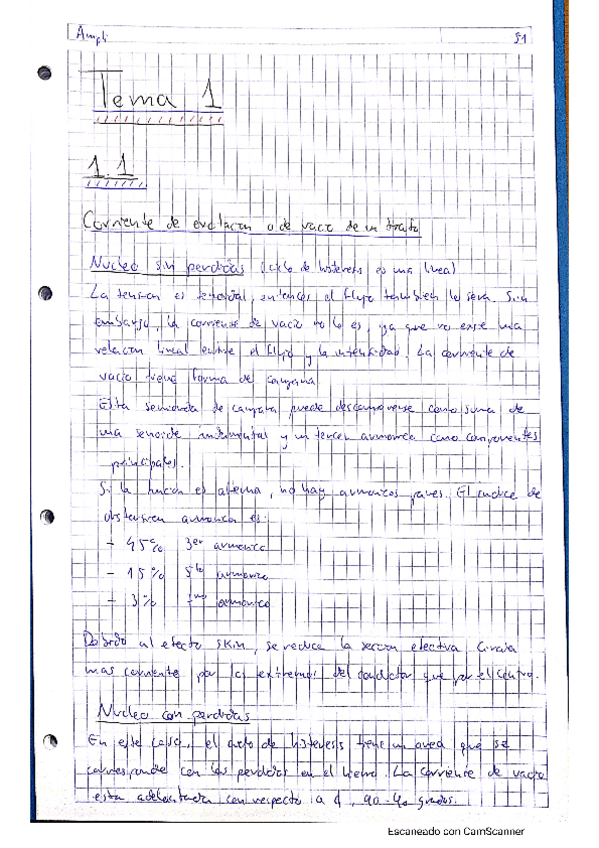 Ampli 51
Tema 1
1.1
Corriente de excitacion o de vacio de un trafo
Nucleo sin perdidas (ciclo de histeresis es una linea)
La tension es senoidal, entonces el flujo tambien lo sera. Sin
embargo, la corriente de vacio no lo es, ya que no existe una
relacion lineal entre el flujo y la intensidad. La corriente de
vacio tiene forma de campana
Esta semionda de campana puede descomponerse como suma de
una senoide y un tercer armonico como componentes
principales.
Si la funcion es alterna, no hay armonicos pares. El indice de
distorsion armonica es:
- 45% 3er armonico
- 15% 5to armonico
- 3% 7mo armonico
Debido al efecto skin, se reduce la seccion efectiva. Circula
mas corriente por los extremos del conductor que por el centro.
Nucleo con perdidas
En este caso, el ciclo de histeresis tiene un area que se
corresponde con las perdidas en el hierro. La corriente de vacio
esta adelantada con respecto a ϕ, 90-φo grados.
Escaneado con CamScanner